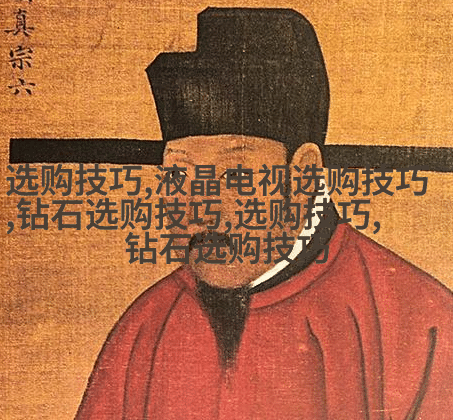 真宗六
选购技巧,液晶电视选购技巧
,钻石选购技巧,选购技巧,
钻石选购技巧